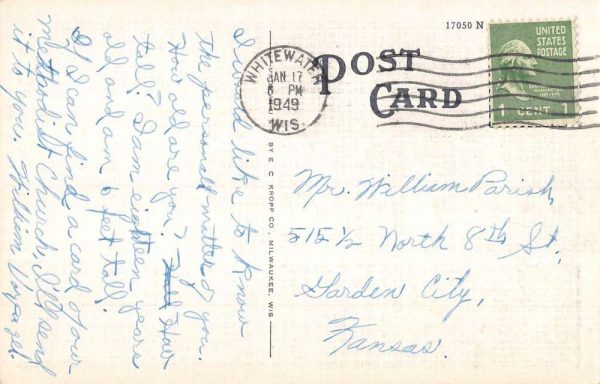 I would like to know
the personal matter of you.
How old are you? How
tall? I am eighteen years
old and am 6 feet tall!
If I can find a card of our
Methodist Church, I'll send
it to you. William Voyager.
BY E. C. KROPP CO., MILWAUKEE, WIS.
17050 N
POST
CARD
WHITEWATER
JAN 17
PM
1949
WIS.
UNITED
STATES
POSTAGE
1 CENT 1
Mr. William Parish,
515 1/2 North 8th St.
Garden City,
Kansas.